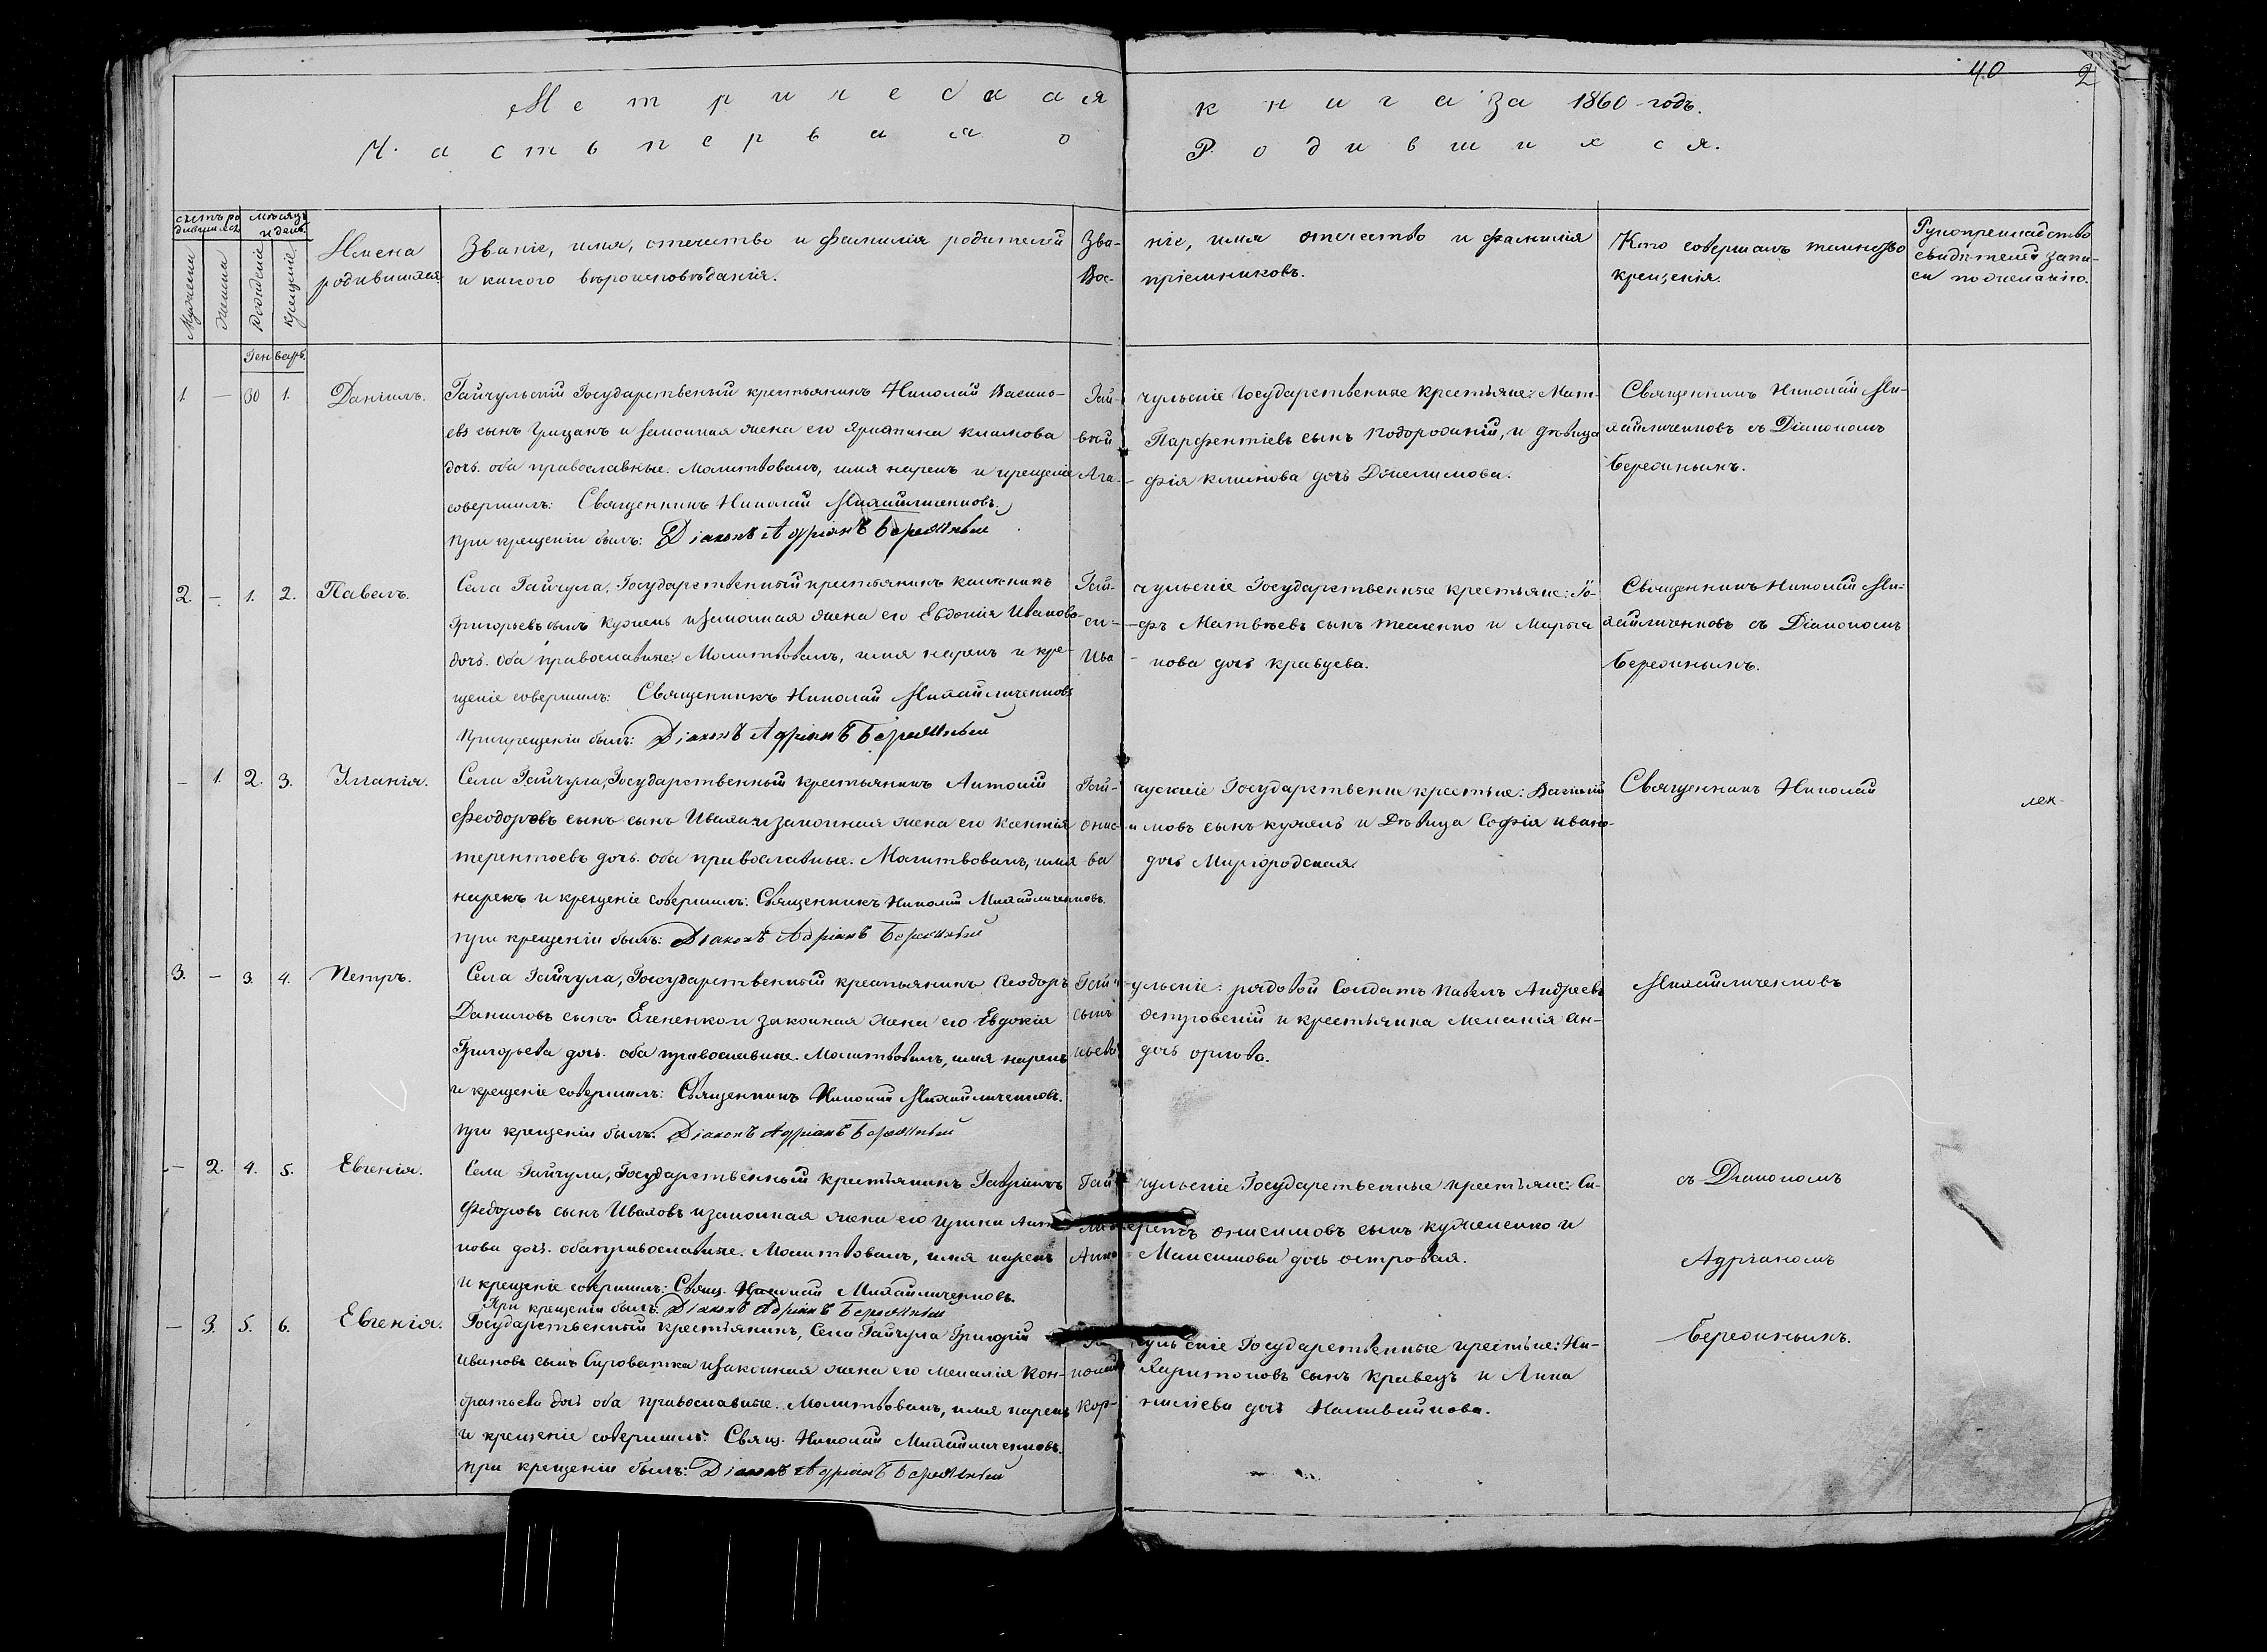 40 2
Метрическая книга за 1860 годъ.
Часть первая о Родившихся.
счетъ родившихся
мѣсяцъ и день
Мужеска
Женска
Рожденіе
Крещеніе
Имена родившихся
Званіе, имя, отечество и фамилія родителей
и какого вѣроисповѣданія.
Званіе, имя отечество и фамилія
Воспріемниковъ.
Кто совершалъ таинство
крещенія.
Рукоприкладство
свидѣтелей запи-
си по желанію.
Генварь.
1 — 30 1. Даніилъ.
Гайчульскій Государственый крестьянинъ Николай Василь-
евъ сынъ Грицанъ и законная жена его Христина климова
дочь. оба православные. Молитвовалъ, имя нарекъ и крещеніе
совершилъ: Священникъ Николай Михайличенковъ.
при крещеніи былъ: Діаконъ Адріанъ Бережный
Гайчульскіе Государственные крестьяне: Мат-
вѣй Парфентіевъ сынъ Подорожній, и дѣвица
Агафія климова дочь
Священникъ Николай Ми-
хайличенковъ съ Діакономъ
Бережнымъ.
2. — 1. 2. Павелъ.
Села Гайчула, Государственный крестьянинъ калинникъ
Григорьевъ сынъ Кужель и законная жена его Евдокія Иванова
дочь. Оба православные: Молитвовалъ, имя нарекъ и кре-
щеніе совершилъ: Священникъ Николай Михайличенковъ
При крещеніи былъ: Діаконъ Адріанъ Бережный
Гайчульскіе Государственные крестьяне: Іо-
сифъ Матвѣевъ сынъ Тешенко и Марья
Иванова дочь кравцева.
Священникъ Николай Ми-
хайличенковъ съ Діакономъ
Бережнымъ.
— 1. 2. 3. Уліанія.
Села Гайчула, Государственный крестьянинъ Антоній
Феодоровъ сынъ сынъ Иваха и законная жена его Ксентія
терентьевъ дочь. оба православные. Молитвовалъ, имя
нарекъ и крещеніе совершилъ: Священникъ Николай Михайличенковъ.
при крещеніи былъ: Діаконъ Адріанъ Бережный
Гайчускіе Государственне крестьяне: Василій
онисимовъ сынъ кужель и Дѣвица Софія ивано-
ва дочь Миргородская.
Священникъ Николай
3. — 3. 4. Петръ.
Села Гайчула, Государственный крестьянинъ Феодоръ
Даниловъ сынъ и законная жена его Евдокія
Григорьева дочь. оба православные. Молитвовалъ, имя нарекъ
и крещеніе совершилъ: Священникъ Николай Михайличенковъ.
при крещеніи былъ: Діаконъ Адріанъ Бережный
Гайчульскіе: рядовой Солдатъ Павелъ Андреевъ
сынъ островскій и крестьянка Меланія Ан-
дочь орлова.
Михайличенковъ
— 2. 4. 5. Евгенія.
Села Гайчула, Государственный крестьянинъ Гавріилъ
Федоровъ сынъ Иваховъ и законная жена его Ирина Анто-
нова дочь. оба православные. Молитвовалъ, имя нарекъ
и крещеніе совершилъ: Свящ. Николай Михайличенковъ.
При крещеніи былъ: Діаконъ Адріанъ Бережный
Гайчульскіе Государственные крестьяне:
онисимовъ сынъ кужеленко и
Анна Максимова дочь островая.
съ Діакономъ
Адріаномъ
— 3. 5. 6. Евгенія.
Государственный крестьянинъ, Села Гайчула Григорій
Ивановъ сынъ Сироватка и законная жена его Меланія Кон-
дратьева дочь оба православные. Молитвовалъ, имя нарекъ
и крещеніе совершилъ: Свящ. Николай Михайличенковъ.
при крещеніи былъ: Діаконъ Адріанъ Бережный
Гайчульскіе Государственные крестьяне: Ни-
колай Харитоновъ сынъ Кравецъ и Анна
Корниліева дочь Наливайкова.
Бережнымъ.